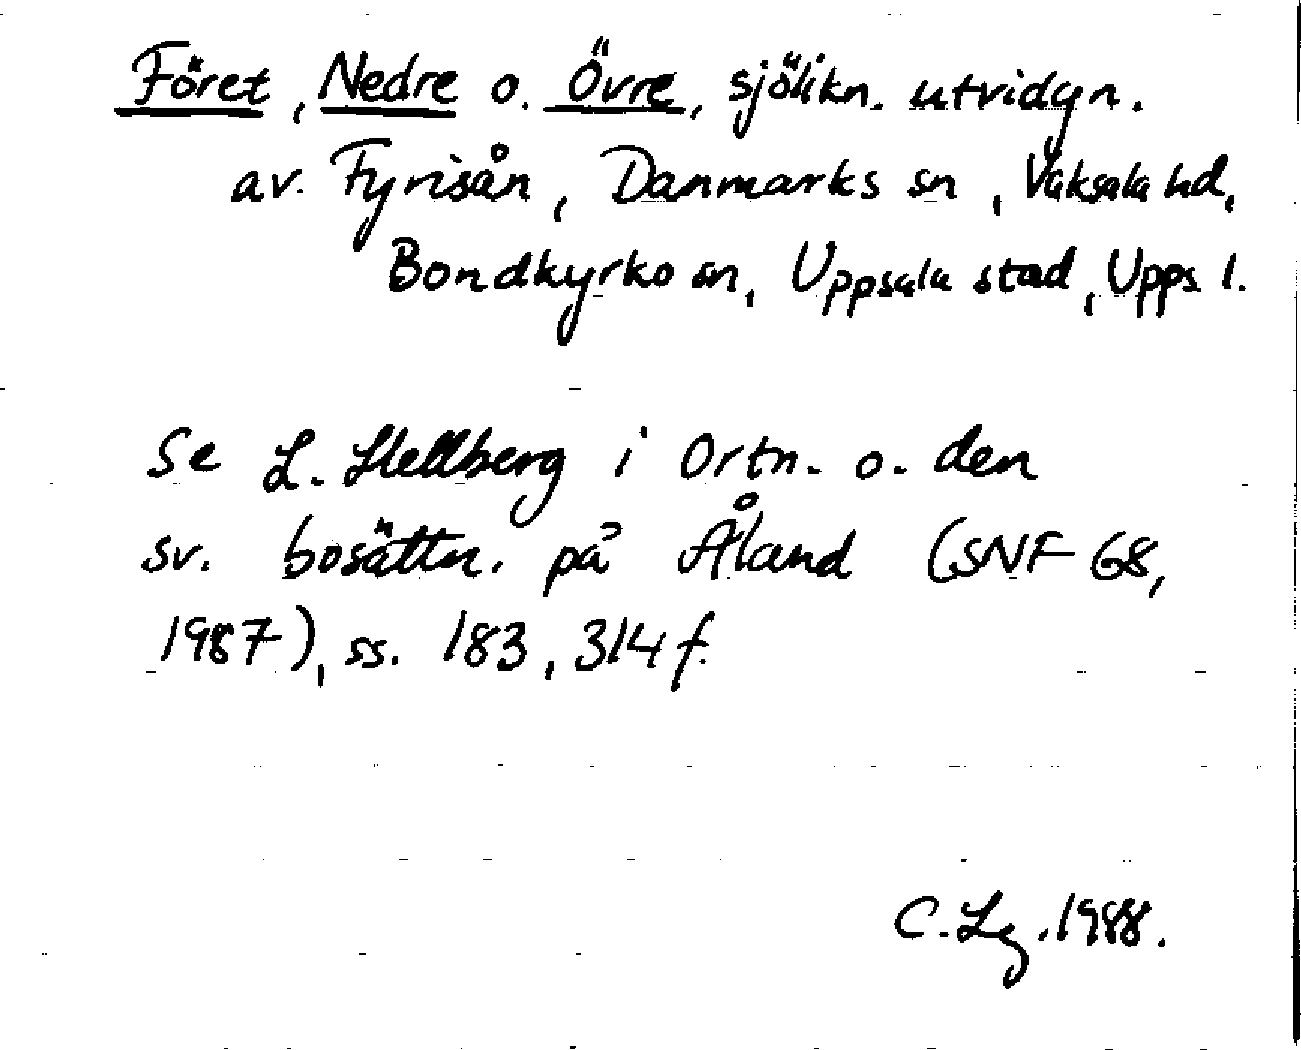 Föret, Nedre o. Övre, sjölikn. utvidgn.
av. Fyrisån, Danmarks sn, Vaksala hd,
Bondkyrko sn, Uppsala stad, Upps. l.
Se L. Hellberg i Ortn. o. den
sv. bosättn. på Åland (SNF 68,
1987), ss. 183, 314 f.
C. Lg. 1988.